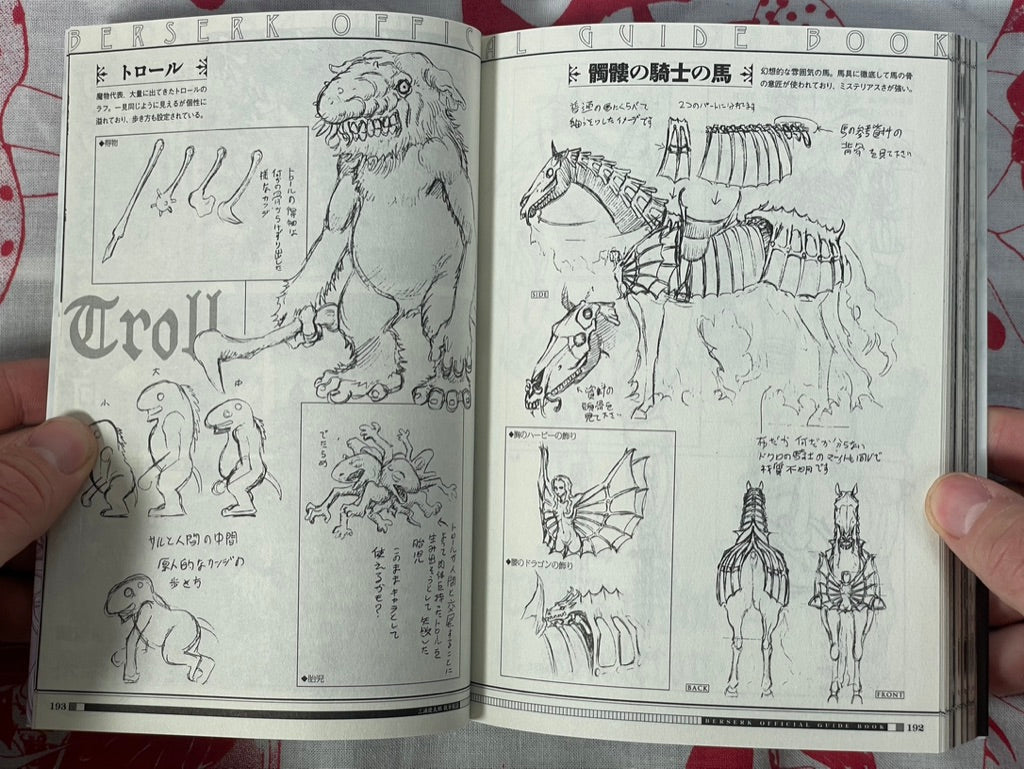 BERSERK OFFICIAL GUIDE BOOK
髑髏の騎士の馬
幻想的な雰囲気の馬。馬具に徹底して馬の骨
の意匠が使われており、ミステリアスさが強い。
普通の馬とくらべて
細っそりしたイメージです
2つのパートに分かれます
馬の参考資料の
背骨を見て下さい
SIDE
資料の
頭骨を
見て下さい
布だか何だか分らない
ドクロの騎士のマントも同じで
材質不明です
◆胸のハーピーの飾り
◆腰のドラゴンの飾り
BACK
FRONT
BERSERK OFFICIAL GUIDE BOOK 192
トロール
魔物代表、大量に出てきたトロールの
ラフ。一見同じように見えるが個性に
溢れており、歩き方も設定されている。
◆得物
トロールの得物は
何かの骨からけずり出した
様なカンジ
Troll
大
中
小
サルと人間の中間
原人的なカンジの
歩き方
でたらめ
トロールが人間と交尾することに
よって肉体を持ったトロールを
生み出そうとして失敗した
胎児
このままキャラとして
使えるかも?
◆胎児
193